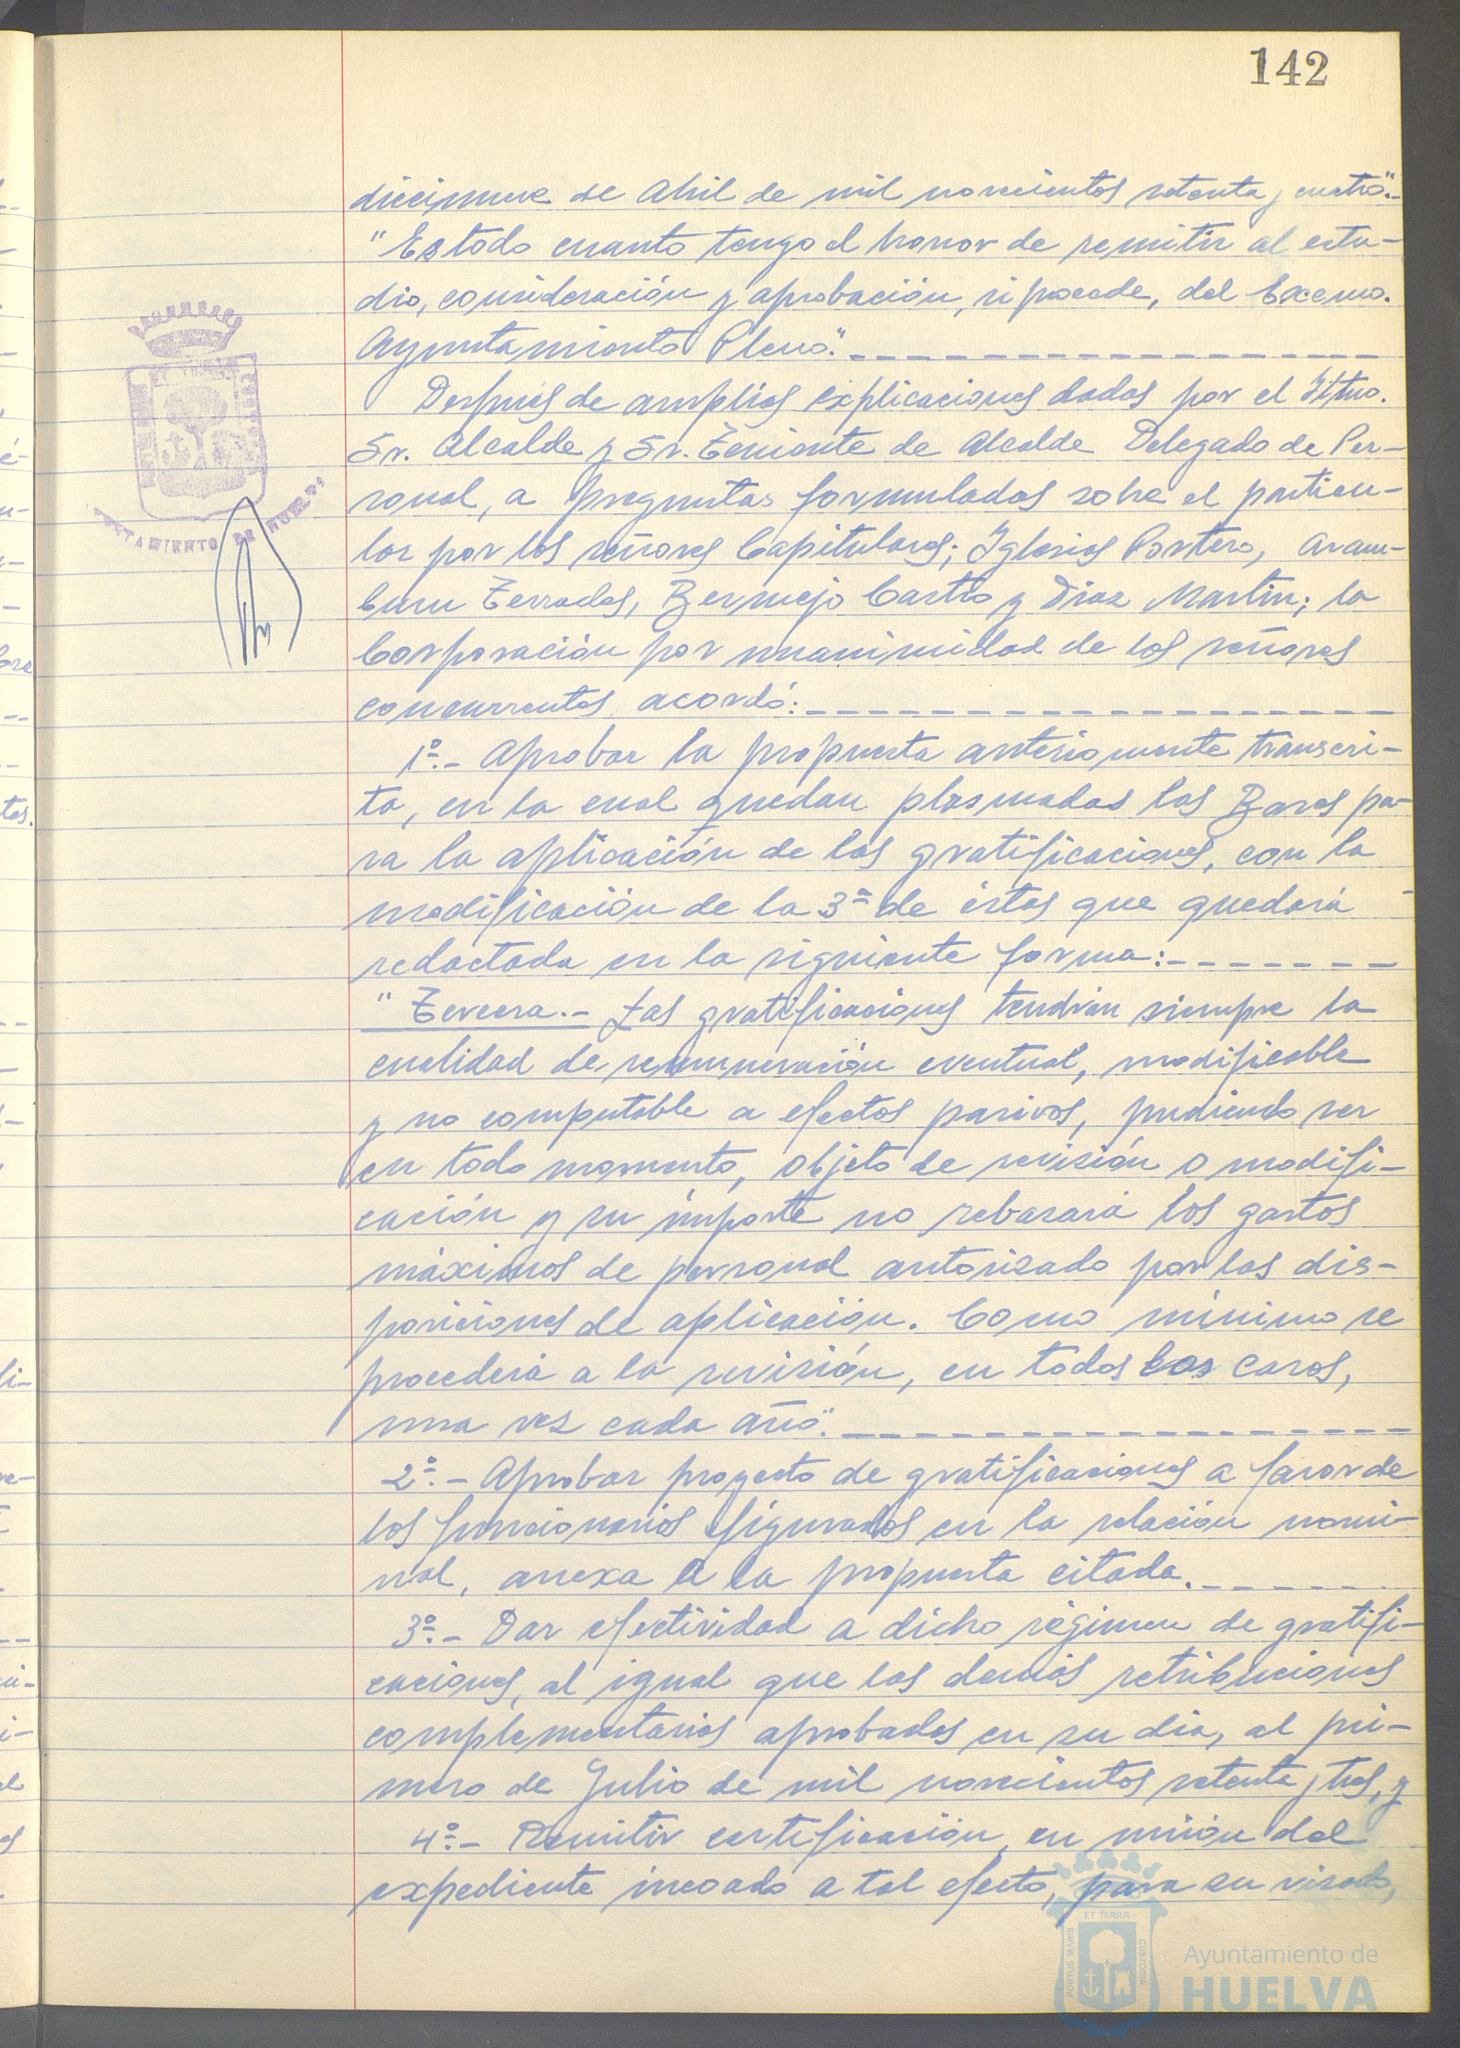 142
diecinueve de Abril de mil novecientos setenta y cuatro".-
"Es todo cuanto tengo el honor de remitir al estu-
dio, consideración y aprobación, si procede, del Excmo.
Ayuntamiento Pleno".
Después de amplias explicaciones dadas por el Iltmo.
Sr. Alcalde y Sr. Teniente de Alcalde Delegado de Per-
sonal, a preguntas formuladas sobre el particu-
lar por los señores Capitulares; Iglesias Portero, Aram-
buru Terrades, Bermejo Castro y Díaz Martín; la
Corporación por unanimidad de los señores
concurrentes acordó:
1º.- Aprobar la propuesta anteriormente transcri-
ta, en la cual quedan plasmadas las Bases pa-
ra la aplicación de las gratificaciones, con la
modificación de la 3ª de éstas que quedará
redactada en la siguiente forma:
"Tercera.- Las gratificaciones tendrán siempre la
cualidad de remuneración eventual, modificable
y no computable a efectos pasivos, pudiendo ser
en todo momento, objeto de revisión o modifi-
cación y su importe no rebasará los gastos
máximos de personal autorizado por las dis-
posiciones de aplicación. Como mínimo se
procederá a la revisión, en todos los casos,
una vez cada año".
2º.- Aprobar proyecto de gratificaciones a favor de
los funcionarios figurados en la relación nomi-
nal, anexa a la propuesta citada.
3º.- Dar efectividad a dicho régimen de gratifi-
caciones, al igual que las demás retribuciones
complementarias aprobadas en su día, al pri-
mero de Julio de mil novecientos setenta y tres, y
4º.- Remitir certificación, en unión del
expediente incoado a tal efecto, para su visado,
ET TERRÆ
PORTUS MARIS
CUSTODIA
Ayuntamiento de
HUELVA